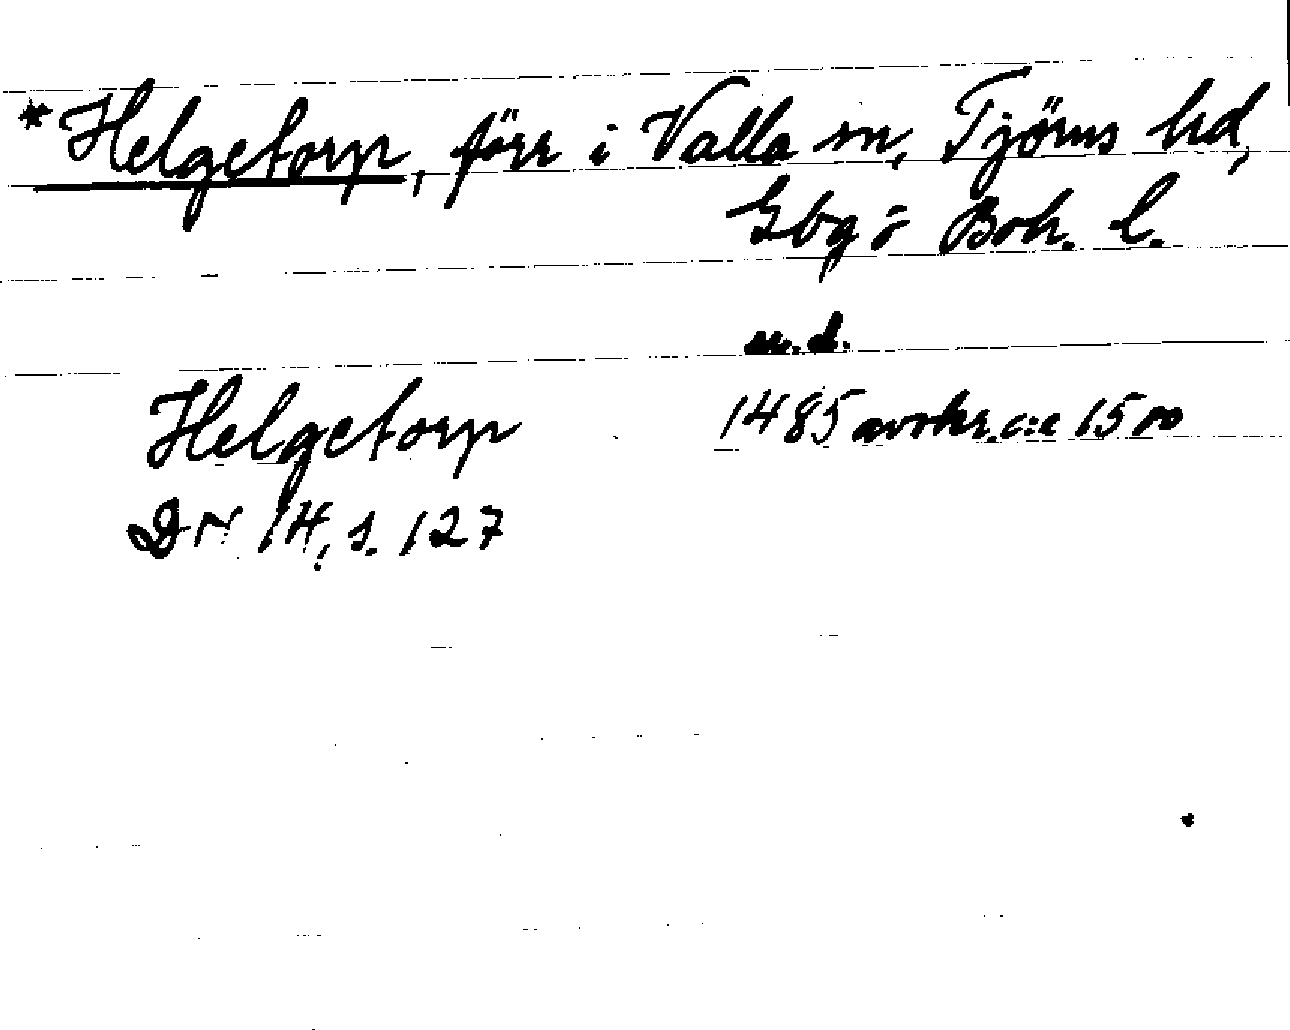 *Helgetorp, förr i Valla sn, Tjörns hd,
Gbg o Boh. l.
n.d.
Helgetorp 1485 avskr. c:a 1500
DN 14, s. 127